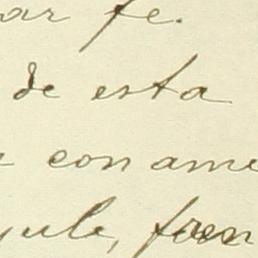 ar fe.
de esta
con ame
yule, fren